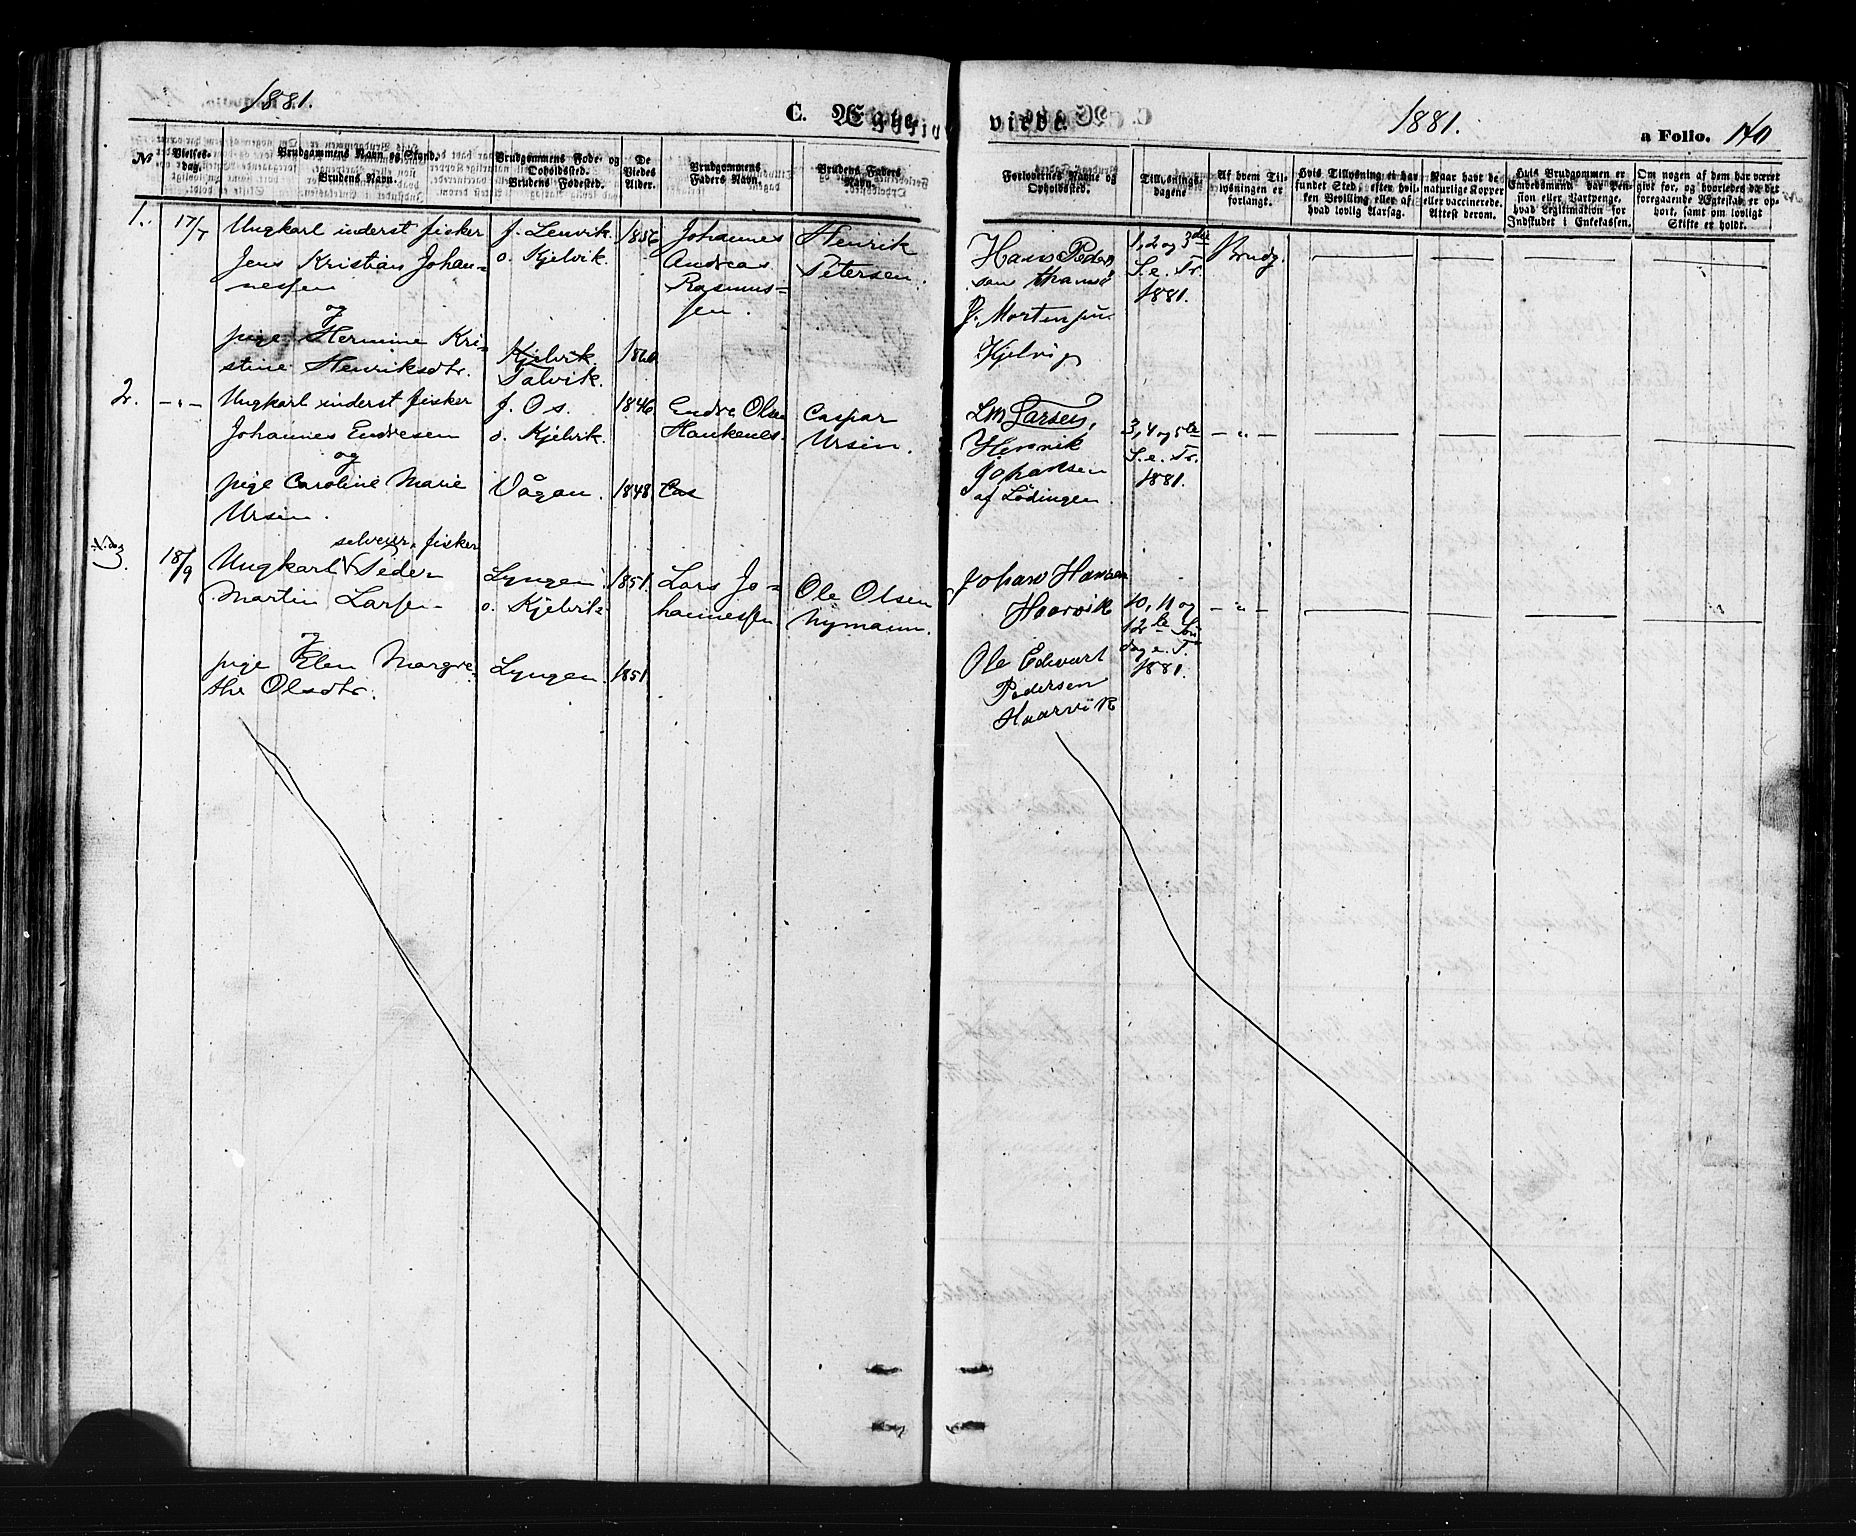 1881.
C. Ægte
viede.
1881.
a Folio. 140
No
Vielses-
dag.
Brudgommens Navn og Stand.
Brudens Navn.
Brudgommens Føde- og
Opholdssted.
Brudens Fødested.
De
Viedes
Alder.
Brudgommens
Faders Navn.
Brudens Faders
Navn.
Forlovernes Navne og
Opholdssted.
Tillysnings-
dagene.
Af hvem Til-
lysningen er
forlangt.
Hvis Tillysning ei har
fundet Sted, efter hvil-
ken Bevilling eller af
hvad lovlig Aarsag.
Naar havt de
naturlige Kopper
eller vaccinerede.
Attest derom.
Hvis Brudgommen er
Embedsmand har Pen-
sion eller Vartpenge,
hvad Legitimation for
Indskudet i Enkekassen.
Om nogen af dem har været
gift før, og hvorledes da det
foregaaende Ægteskab er op-
hørt, samt om lovligt
Skifte er holdt.
1. 17/7
Ungkarl inderst fisker
Jens Kristian Johan-
nessen
og
pige Hermine Kri-
stine Henriksdtr.
f. Lenvik.
o. Kjelvik.
Kjelvik.
Talvik.
1856
1860
Johannes
Andreas
Rasmus-
sen.
Henrik
Petersen.
Hans Peder
sen
P. Mortensen
Kjelvig
1, 2 og 3die
S. e. Tr.
1881.
Brudg.
2. - " -
Ungkarl inderst fisker
Johannes Endresen
og
pige Caroline Marie
Ursin.
f. Os.
o. Kjelvik.
Vågan.
1846
1848
Endre Olsen
Haukenes.
Cas
Caspar
Ursin.
LM Larsen,
Henrik
Johansen
af Lødingen
3, 4 og 5te
S. e. Tr.
1881.
- " -
N. dag
3. 18/9
selveier, fisker
Ungkarl Peder
Martin Larsen
og
pige Elen Margre-
the Olsdtr.
Lyngen
o. Kjelvik
Lyngen.
1851.
1851
Lars Jo-
hannessen
Ole Olsen
Nymann.
Johan Hansen
Haarvik
Ole Edvart
Pedersen
Haarvik
10, 11 og
12te Søn
dag e. T.
1881.
- " -